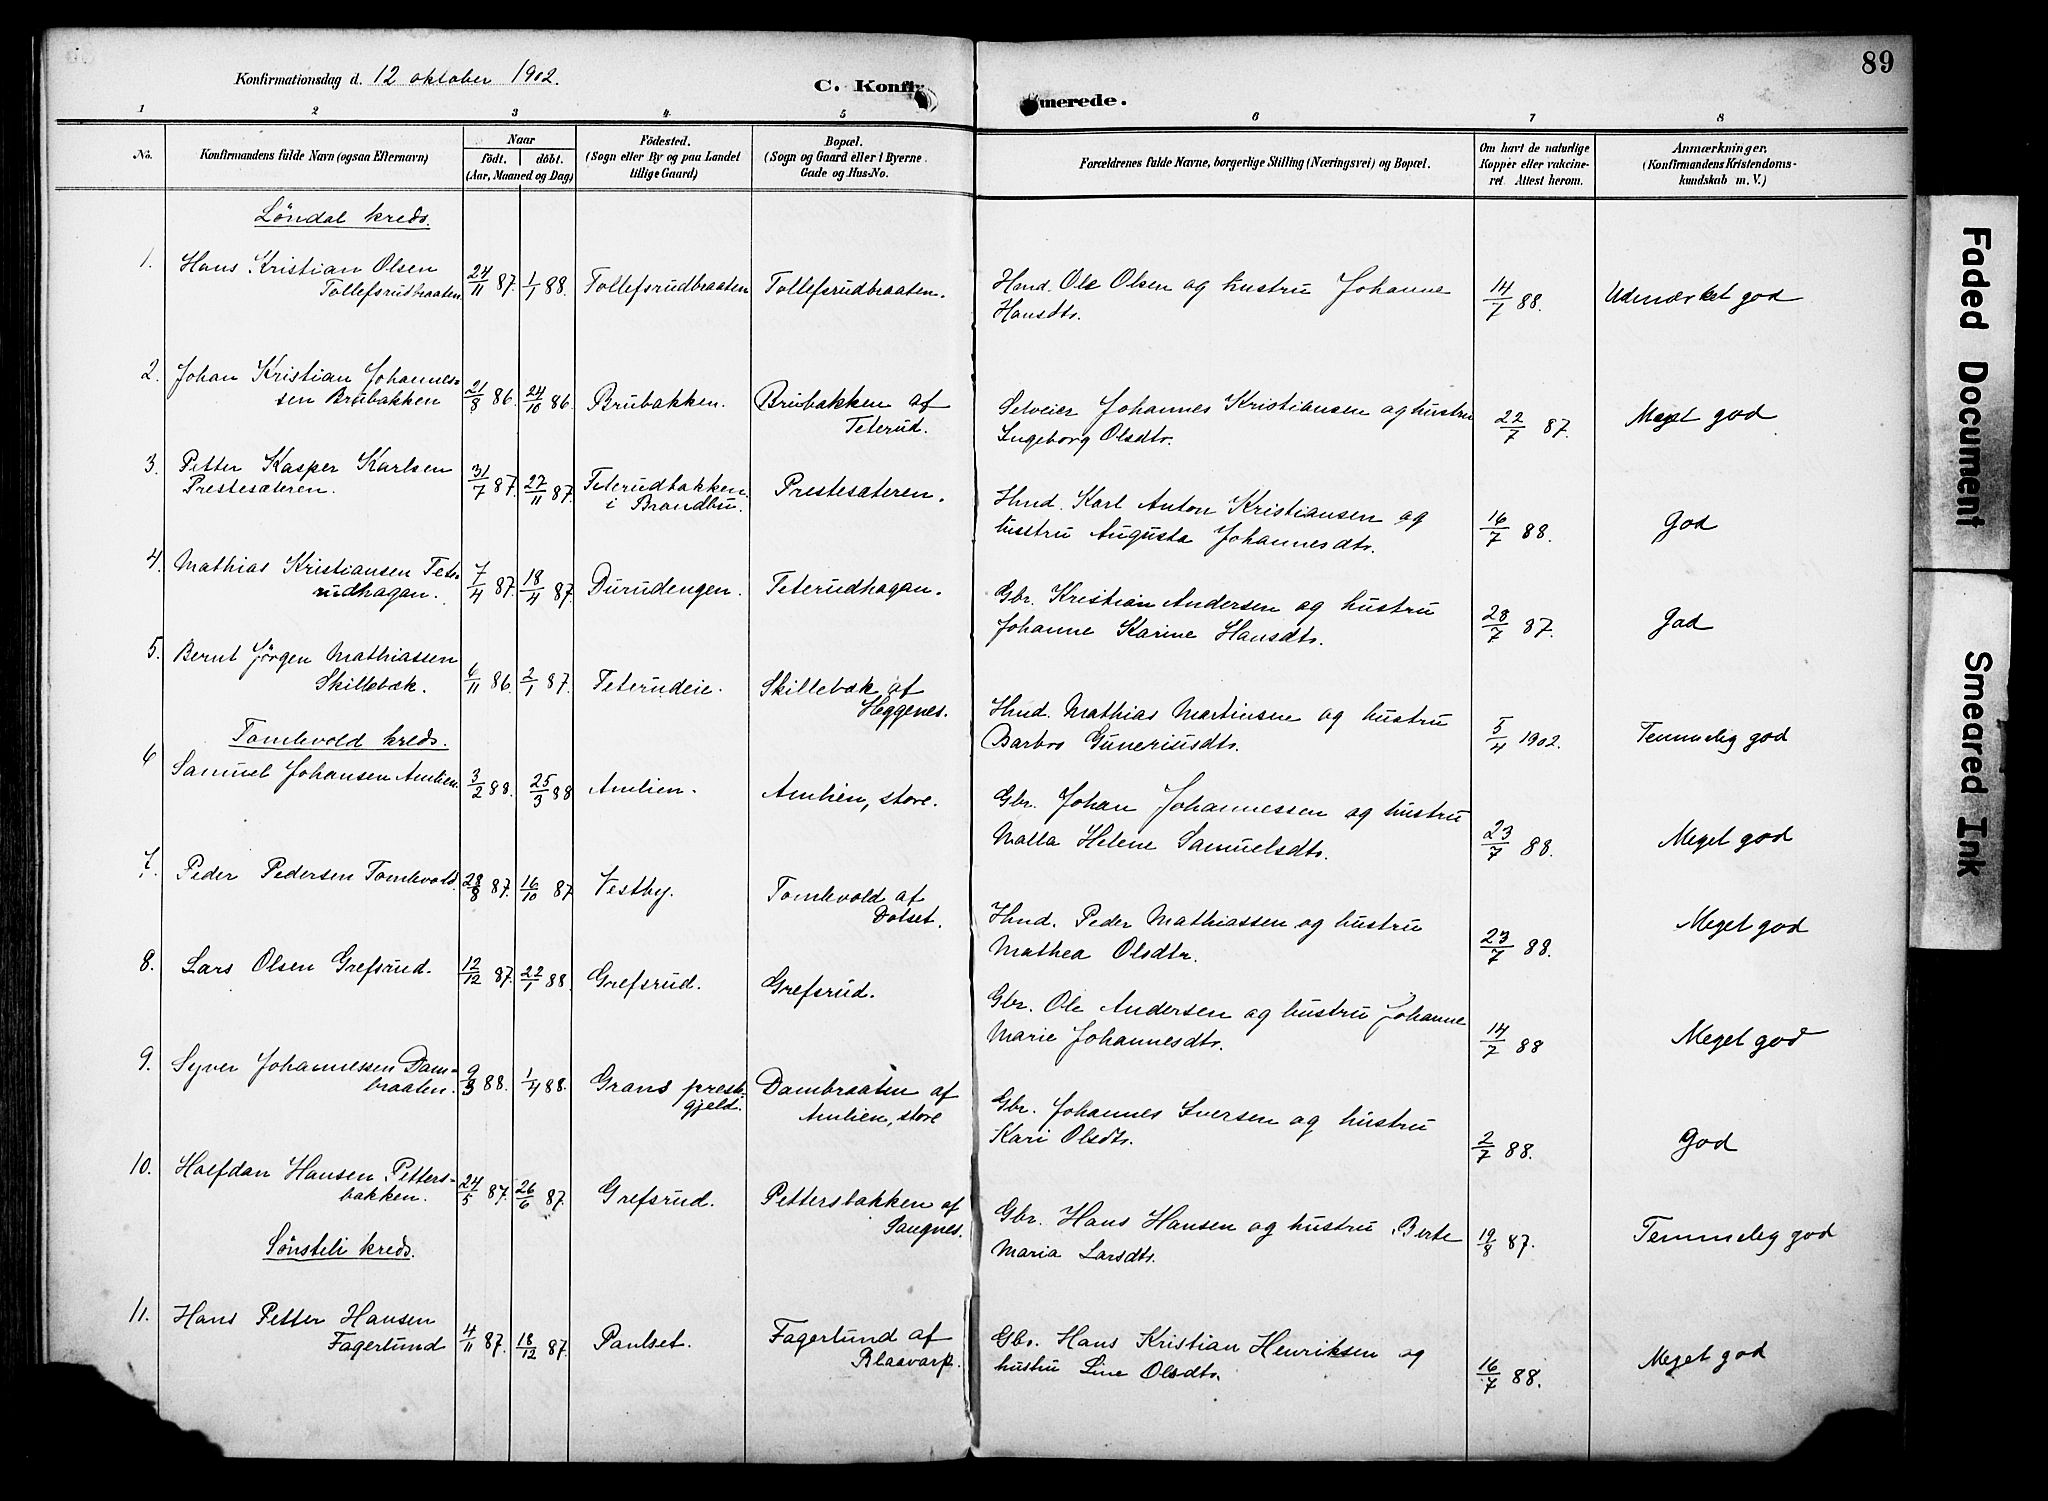 89
Konfirmationsdag d. 12 oktober 1902.
C. Konfir
merede.
1 2 3 4 5 6 7 8
No.
Konfirmandens fulde Navn (ogsaa Efternavn)
Naar
födt. döbt.
(Aar, Maaned og Dag)
Födested.
(Sogn eller By og paa Landet
tillige Gaard)
Bopæl.
(Sogn og Gaard eller i Byerne
Gade og Hus-No.
Forældrenes fulde Navne, borgerlige Stilling (Næringsvei) og Bopæl.
Om havt de naturlige
Kopper eller vakcine-
ret Attest herom.
Anmærkninger.
(Konfirmandens Kristendoms-
kundskab m. V.)
Löndal kreds.
1. Hans Kristian Olsen
Tollefsrudbraaten
24/11 87. 1/1 88. Tollefsrudbraaten Tollefsrudbraaten.
Hmd. Ole Olsen og hustru Johanne
Hansdtr.
14/7 88. Udmærket god
2. Johan Kristian Johannes-
sen Brubakken
21/8 86. 24/10 86. Brubakken. Brubakken af
Teterud.
Selveier Johannes Kristiansen og hustru
Ingeborg Olsdtr.
22/7 87. Meget god
3. Petter Kasper Karlsen
Prestesæteren.
31/7 87. 27/11 87. Teterudbakken
i Brandbu.
Prestesæteren.
Hmd. Karl Anton Kristiansen og
hustru Augusta Johannesdtr.
16/7 88. God
4. Mathias Kristiansen Tete-
rudhagan.
7/4 87. 18/4 87. Durudengen. Teterudhagan.
Gbr. Kristian Andersen og hustru
Johanne Karine Hansdtr.
28/7 87. God
5. Bernt Jörgen Mathiassen
Skillebæk.
6/11 86. 2/1 87. Teterudeie. Skillebæk af
Heggenes.
Hmd. Mathias Martinsen og hustru
Barbro Guneriusdtr.
5/4 1902. Temmelig god
Tomlevold kreds.
6 Samuel Johansen Amlien.
3/2 88. 25/3 88 Amlien. Amlien, store.
Gbr. Johan Johannessen og hustru
Malla Helene Samuelsdtr.
23/7 88. Meget god
7. Peder Pedersen Tomlevold.
28/8 87. 16/10 87. Vestby. Tomlevold af
Dolset.
Hmd. Peder Mathiassen og hustru
Mathea Olsdtr.
23/7 88. Meget god
8. Lars Olsen Grefsrud.
12/12 87. 22/1 88. Grefsrud. Grefsrud.
Gbr. Ole Andersen og hustru Johanne
Marie Johannesdtr.
14/7 88 Meget god
9. Syver Johannessen Dam-
braaten.
9/3 88. 1/4 88. Grans preste-
gjeld.
Dambraaten af
Amlien, store
Gbr. Johannes Iversen og hustru
Kari Olsdtr.
2/7 88. God
10. Halfdan Hansen Petters-
bakken.
24/5 87. 26/6 87. Grefsrud. Pettersbakken af
Saugnes.
Gbr. Hans Hansen og hustru Berte
Maria Larsdtr.
19/8 87. Temmelig god
Sönsteli kreds.
11. Hans Petter Hansen
Fagerlund
4/11 87. 18/12 87. Paulset. Fagerlund af
Blaavarp.
Gbr. Hans Kristian Henriksen og
hustru Line Olsdtr.
16/7 88. Meget god
Faded Document
Smeared Ink